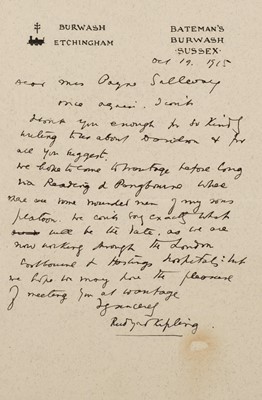 BURWASH
ETCHINGHAM
BATEMAN'S
BURWASH
SUSSEX
Oct 19. 1915
Dear Mrs Payne Gallwey
Once again I can't
thank you enough for so kindly
writing to us about Davidson & for
all you suggest.
We hope to come to Wantage before long
via Reading & Pangbourne where
there are some wounded men of my sons
platoon. We can't say exactly what
will be the date, as we are
now working through the London
Eastbourne & Hastings hospitals: but
we hope we may have the pleasure
of meeting you at Wantage
Yrs sincerely
Rudyard Kipling.